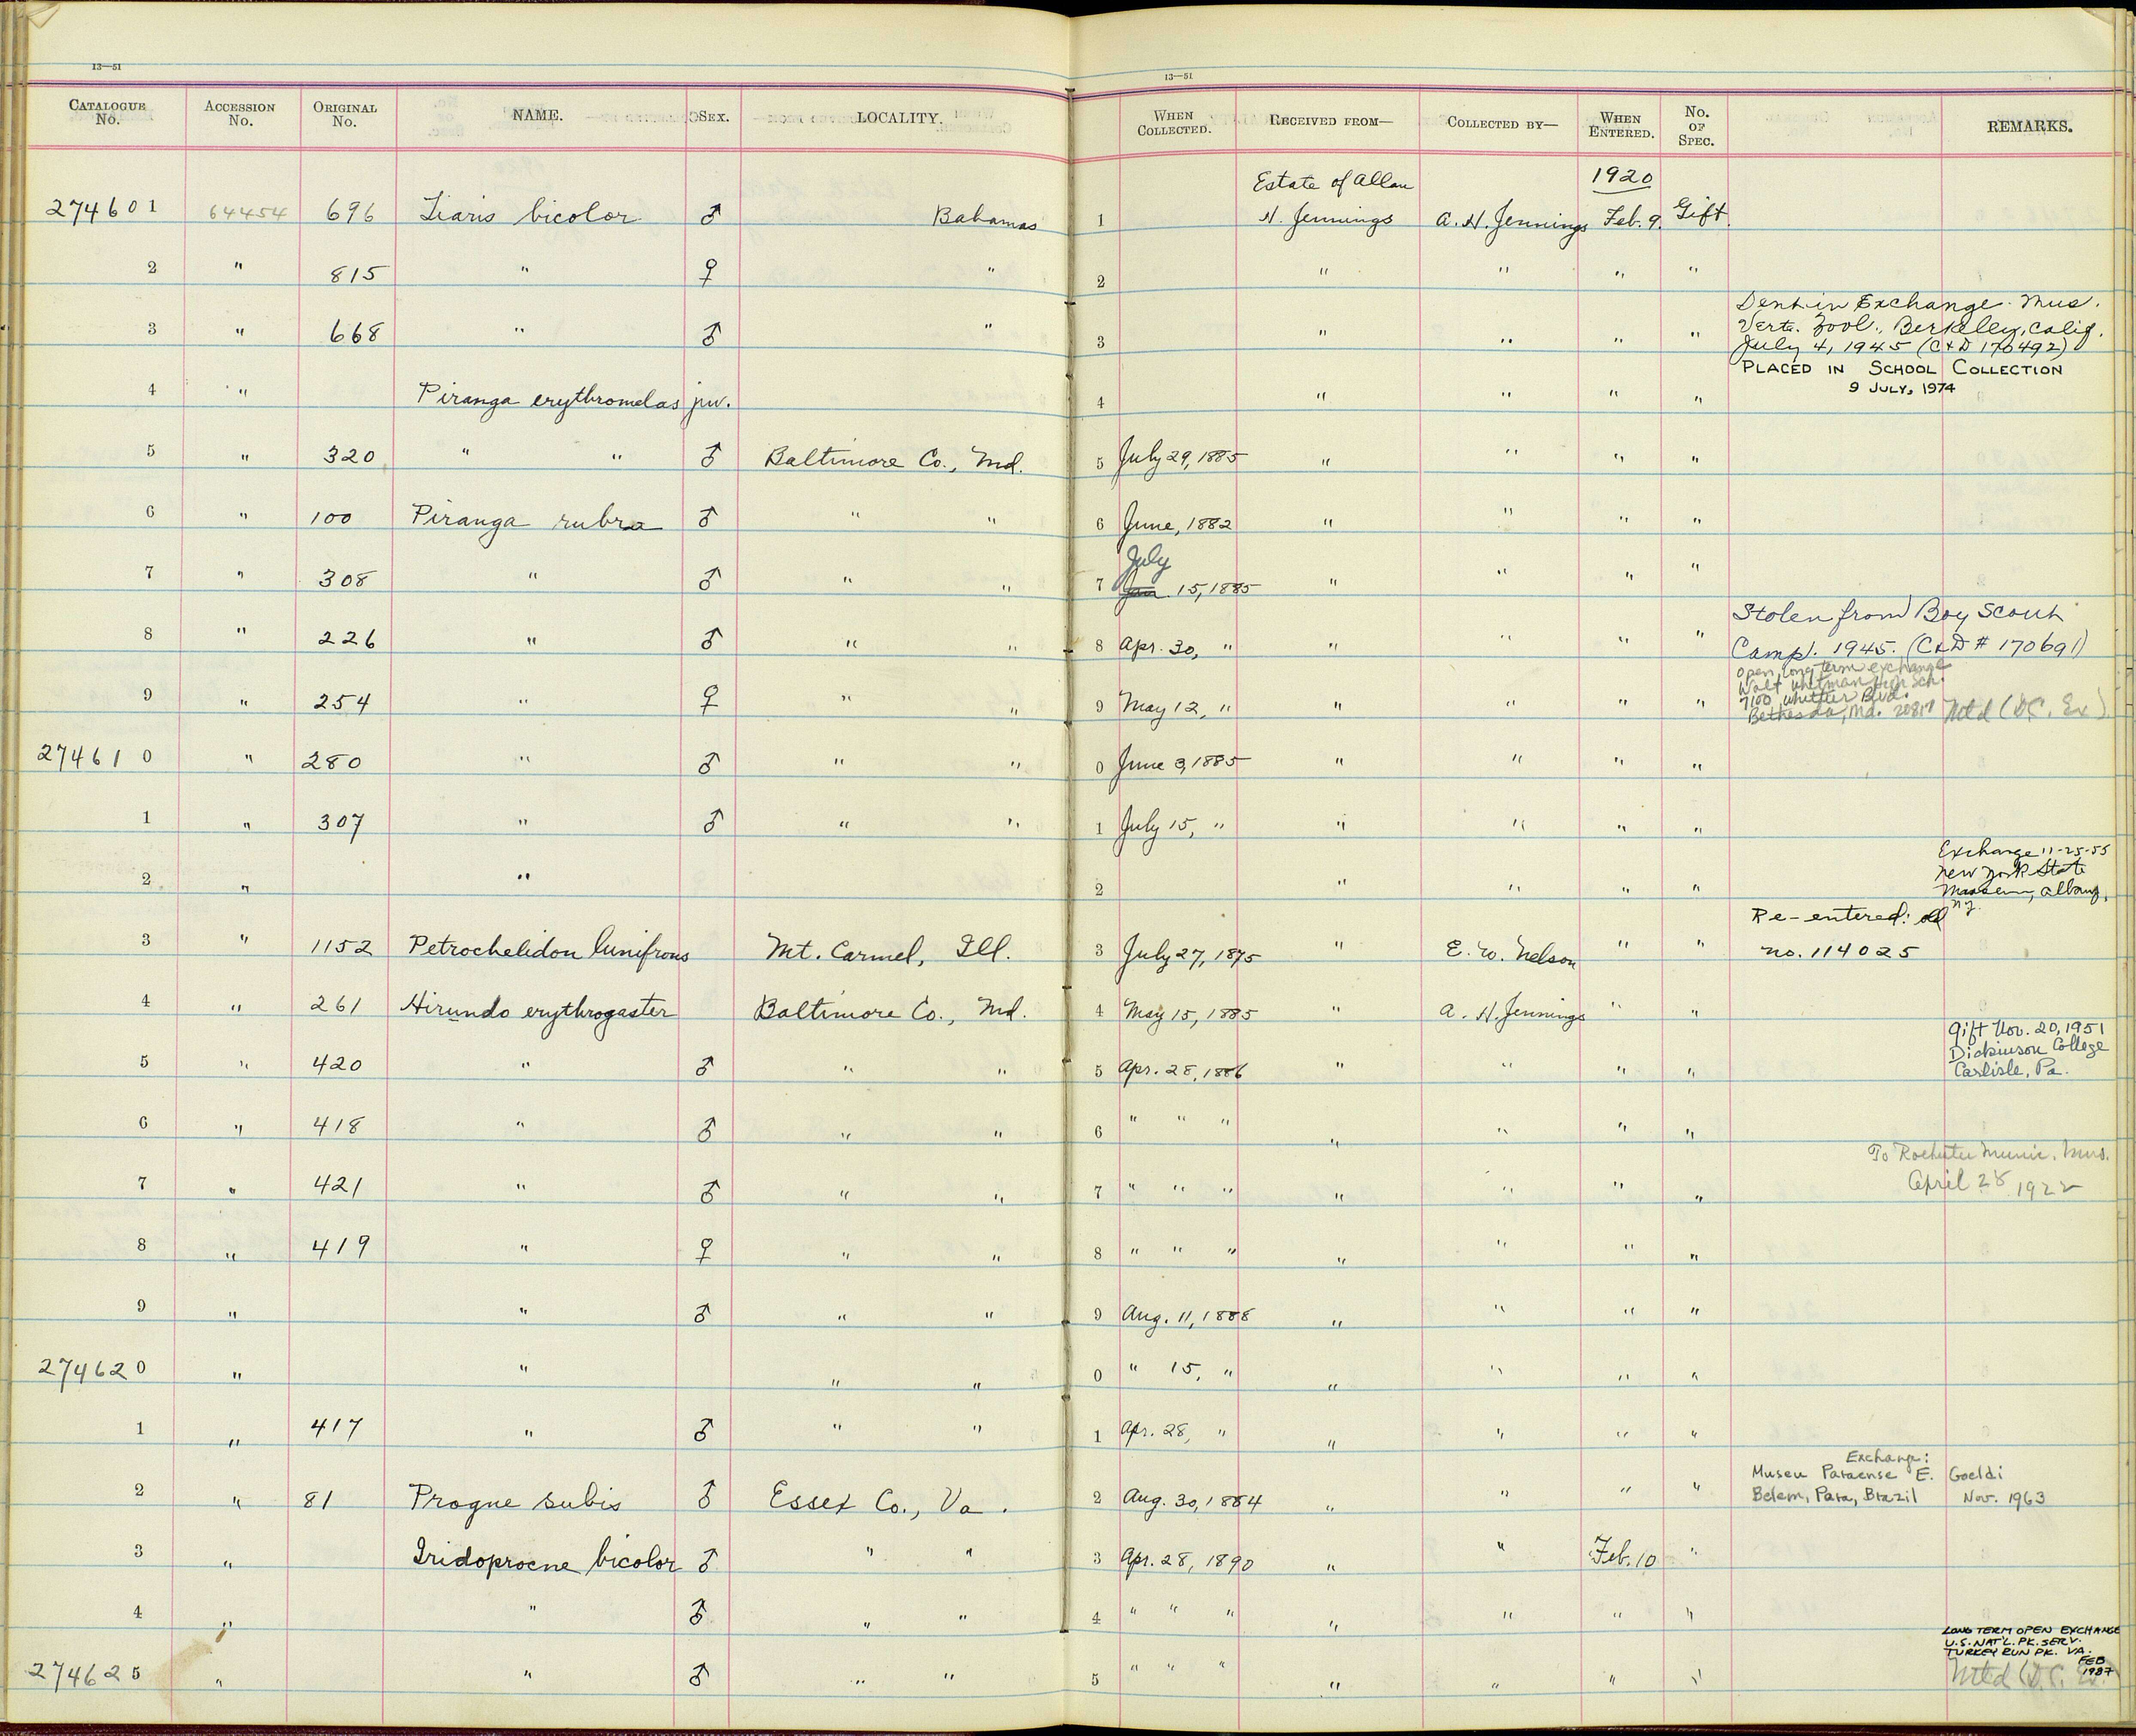 13—51
13—51
CATALOGUE No. ACCESSION No. ORIGINAL No. NAME. SEX. LOCALITY. WHEN COLLECTED. RECEIVED FROM— COLLECTED BY— WHEN ENTERED. No. OF SPEC. REMARKS.
Estate of Allan 1920
274601 64454 696 Tiaris bicolor ♂ Bahamas 1 H. Jennings A. H. Jennings Feb. 9. Gift.
2 " 815 " ♀ " 2 " " " "
Sent in Exchange. Mus.
Vert. Zool., Berkeley, Calif.
3 " 668 " ♂ " 3 " " " " July 4, 1945 (C&D 170492)
PLACED IN SCHOOL COLLECTION
4 " Piranga erythromelas juv. 4 " " " " 9 JULY, 1974
5 " 320 " " ♂ Baltimore Co., Md. 5 July 29, 1885 " " " "
6 " 100 Piranga rubra ♂ " " 6 June, 1882 " " " "
July
7 " 308 " ♂ " " 7 Jan. 15, 1885 " " " "
Stolen from Boy Scout
8 " 226 " ♂ " " 8 Apr. 30, " " " " " Camp. 1945. (C&D # 170691)
Open long term exchange
Walt Whitman High Sch.
9 " 254 " ♀ " " 9 May 12, " " " " " 7100 Whittier Blvd.
Bethesda, Md. 20817 Mtd (DC. Ex)
274610 " 280 " ♂ " " 0 June 3, 1885 " " " "
1 " 307 " ♂ " " 1 July 15, " " " " "
Exchange 11-25-55
New York State
2 " " 2 " " " " Museum, Albany,
N.Y.
Re-entered: old
3 " 1152 Petrochelidon lunifrons Mt. Carmel, Ill. 3 July 27, 1875 " E. W. Nelson " " no. 114025
4 " 261 Hirundo erythrogaster Baltimore Co., Md. 4 May 15, 1885 " A. H. Jennings " "
Gift Nov. 20, 1951
Dickinson College
5 " 420 " ♂ " " 5 Apr. 28, 1886 " " " " Carlisle, Pa.
6 " 418 " ♂ " " 6 " " " " " " "
To Rochester Munic. Mus.
7 " 421 " ♂ " " 7 " " " " " " " April 28 1922
8 " 419 " ♀ " " 8 " " " " " " "
9 " " ♂ " " 9 Aug. 11, 1888 " " " "
274620 " " " " 0 " 15, " " " " "
1 " 417 " ♂ " " 1 Apr. 28, " " " " "
Exchange:
Museu Paraense E. Goeldi
2 " 81 Progne subis ♂ Essex Co., Va. 2 Aug. 30, 1884 " " " " Belem, Para, Brazil Nov. 1963
3 " Iridoprocne bicolor ♂ " " 3 Apr. 28, 1890 " " Feb. 10 "
4 " " ♂ " " 4 " " " " " " "
LONG TERM OPEN EXCHANGE
U.S. NAT'L. PK. SERV.
TURKEY RUN PK. VA.
FEB
1987
274625 " " ♂ " " 5 " " " " " " " Mtd (D.C.